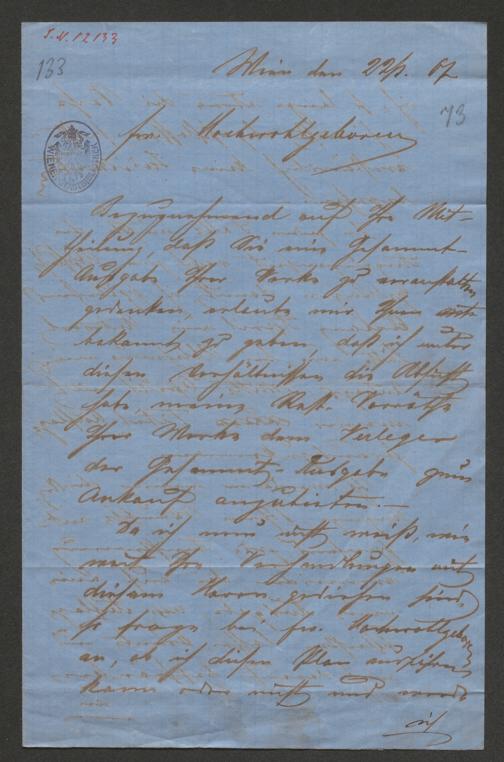 I. N. 12133
133
Wien den 22/1. 67
73
Ew. Hochwohlgeboren
Bezugnehmend auf Ihre Mit-
theilung, daß Sie eine Gesammt-
Ausgabe Ihrer Werke zu veranstalten
gedenken, erlaube mir Ihnen
bekannt zu geben, daß ich unter
diesen Verhältnissen die Absicht
habe, meine Rest-Vorräthe
Ihrer Werke dem Verleger
der Gesammt-Ausgabe zum
Ankauf anzubieten.—
Da ich nun nicht weiß, wie
weit Ihre Verhandlungen mit
diesem Herrn gediehen sind,
so frage bei Ew. Hochwohlgeboren
an, ob ich diesen Plan ausführen
kann oder nicht und werde
ich